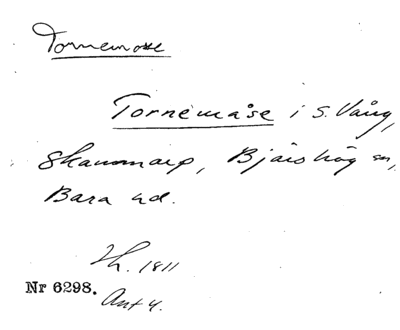 Tornemosse
Tornemåse i S. Vång,
Skabersjö, Bjärshög sn,
Bara hd.
Th. 1811
Nr 6298.
Ant 4.